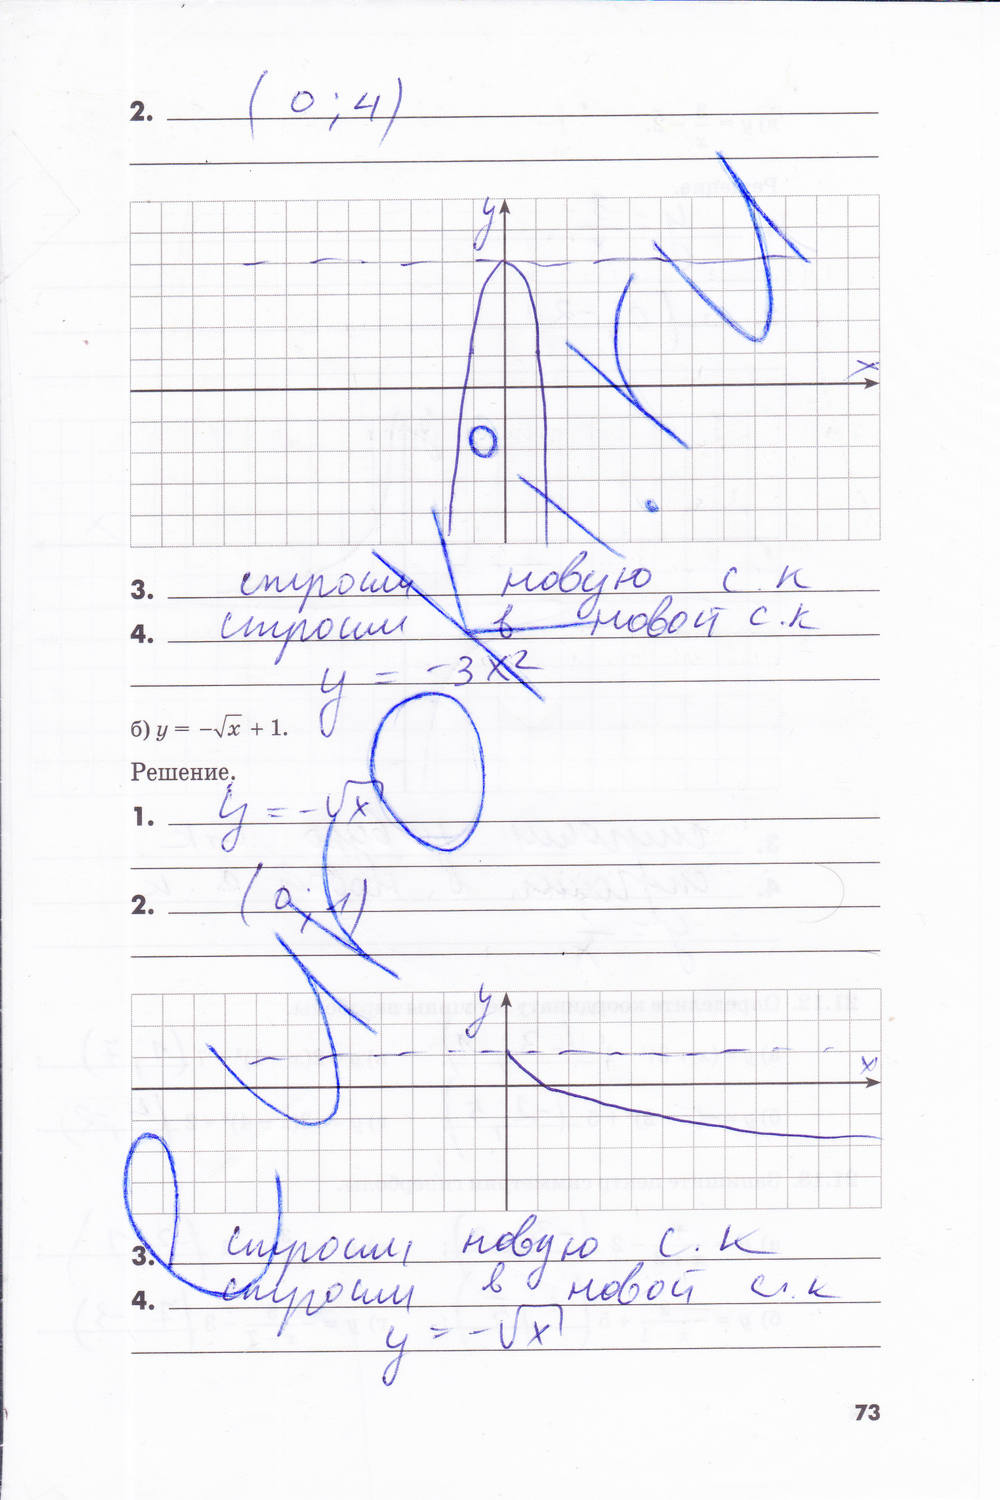 2. (0; 4)
y
x
3. строим новую с.к
4. строим в новой с.к
y = -3x²
б) y = -√x + 1.
Решение.
1. y = -√x
2. (0; 1)
y
x
3. строим новую с.к
4. строим в новой с.к
y = -√x
73